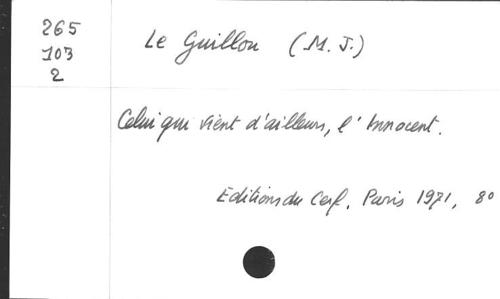 265
103
2
Le Guillou (M. J.)
Celui qui vient d'ailleurs, l'Innocent.
Editions du Cerf, Paris 1971, 80